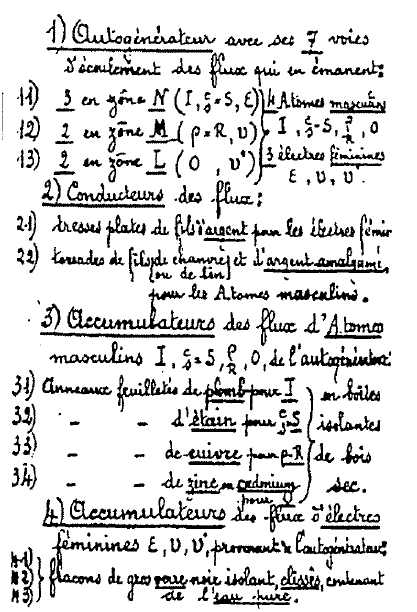 1) Autogénérateur avec ses 7 voies
d'écoulement des flux qui en émanent:
11) 3 en zône N (I, S, E) } 4 Atomes masculins
12) 2 en zône M (ρ=R, υ) } I, S, ρ R, O
13) 2 en zône L (O, υ') } 3 électres féminines
E, υ, υ'
2) Conducteurs des flux:
21) tresses plates de fils d'argent pour les électres fémin
22) torsades de fils de chanvre et d'argent amalgamé,
(ou de lin)
pour les Atomes masculins.
3) Accumulateurs des flux d'Atomes
masculins I, S, ρ R, O, de l'autogénérateur:
31) Anneaux feuilletés de plomb pour I } en boîtes
32) – – d'étain pour S } isolantes
33) – – de cuivre pour ρ-R } de bois
34) – – de zinc ou cadmium } sec.
pour
4) Accumulateurs des flux d'électres
féminines E, υ, υ', provenant de l'autogénérateur:
41)
42) } flacons de gros verre noir isolant, clissés, contenant
43) de l'eau pure.